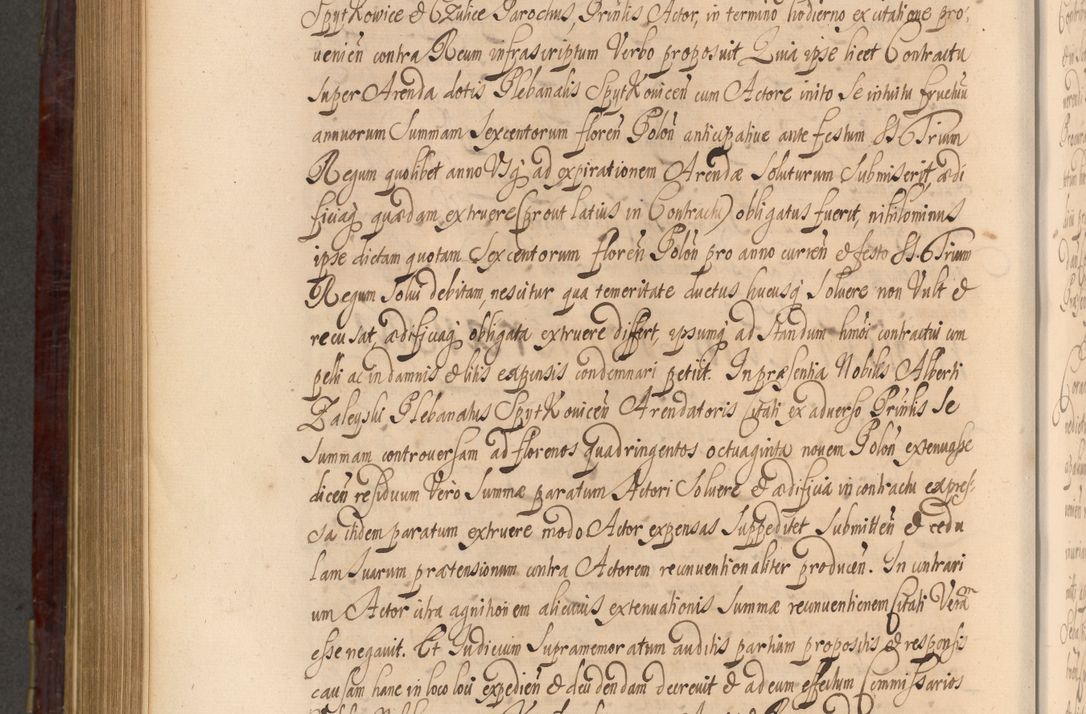 Spytkowice et Czulice Parochus, Prinlis Actor, in termino hodierno ex citatione pro:
venien contra Reum infrascriptum Verbo proposuit Quia ipse licet Contractu
super Arenda dotis Plebanalis Spytkovicen cum Actore inito se intuitu fructuu
annuorum Summam sexcentorum floren Polon anticipative ante festum SS. Trium
Regum quolibet anno Usq ad expirationem Arendæ soluturum submiserit, ædi
ficiaq quædam extruere (prout latius in Contractu) obligatus fuerit, nihilominus
ipse dictam quotam sexcentorum floren Polon pro anno curren et festo SS. Trium
Regum solui debitam, nescitur qua temeritate ductus hucusq soluere non Vult et
recusat, ædificiaq obligata extruere differt, ipsumq ad standum hmoi contractui com
pelli ac in damnis et litis expensis condemnari petiit. In præsentia Nobilis Alberti
Zaleyski Plebanalis Spytkovicen Arendatoris Citati ex adverso Prinlis se
summam controversam ad florenos quadringentos octuaginta novem Polon extenuasse
dicen residuum Vero summæ paratum Actori soluere et ædificia in contractu expres-
sa itidem paratum extruere modo Actor expensas suppeditet submitten et cedu
lam suarum prætensionum contra Actorem reconventionaliter producen. In contrari
um Actor citra agnitionem alicuius extenuationis summæ reconventionem Citati Veram
esse negavit. Et Judicium supramemoratum auditis partium propositis et responsis
causam hanc in loco loci expedien et decidendam decrevit et ad eum effectum Commissarios